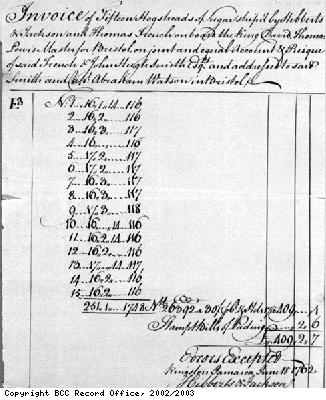 Invoice of Fifteen Hogsheads of Sugar ship'd by Hibberts
& Jackson and Thomas French on board the King David, Thomas
Louis Master for Bristol on joint and equal Account & Risque
of said French & John Hugh Smith Esqrs. and addressed to said
Smith and Abraham Watson in Bristol
No. 1 16,,1,,14 116
2 16,,2 116
3 16,,3 117
4 16,, 116
5 17,,2 117
6 17,,2 117
7 16,,3 117
8 16,,3 117
9 17,,3 118
10 16,, 14 116
11 16,,2,,14 116
12 16,,2 116
13 17,, 14 117
14 16,,2 116
15 16,,2 116
251,,1 1748
Stampt Bills of Lading 2,,6
409,,2,,7
Errors Excepted
Kingston Jamaica June 18 1762
Hibberts & Jackson
Copyright BCC Record Office, 2002/2003